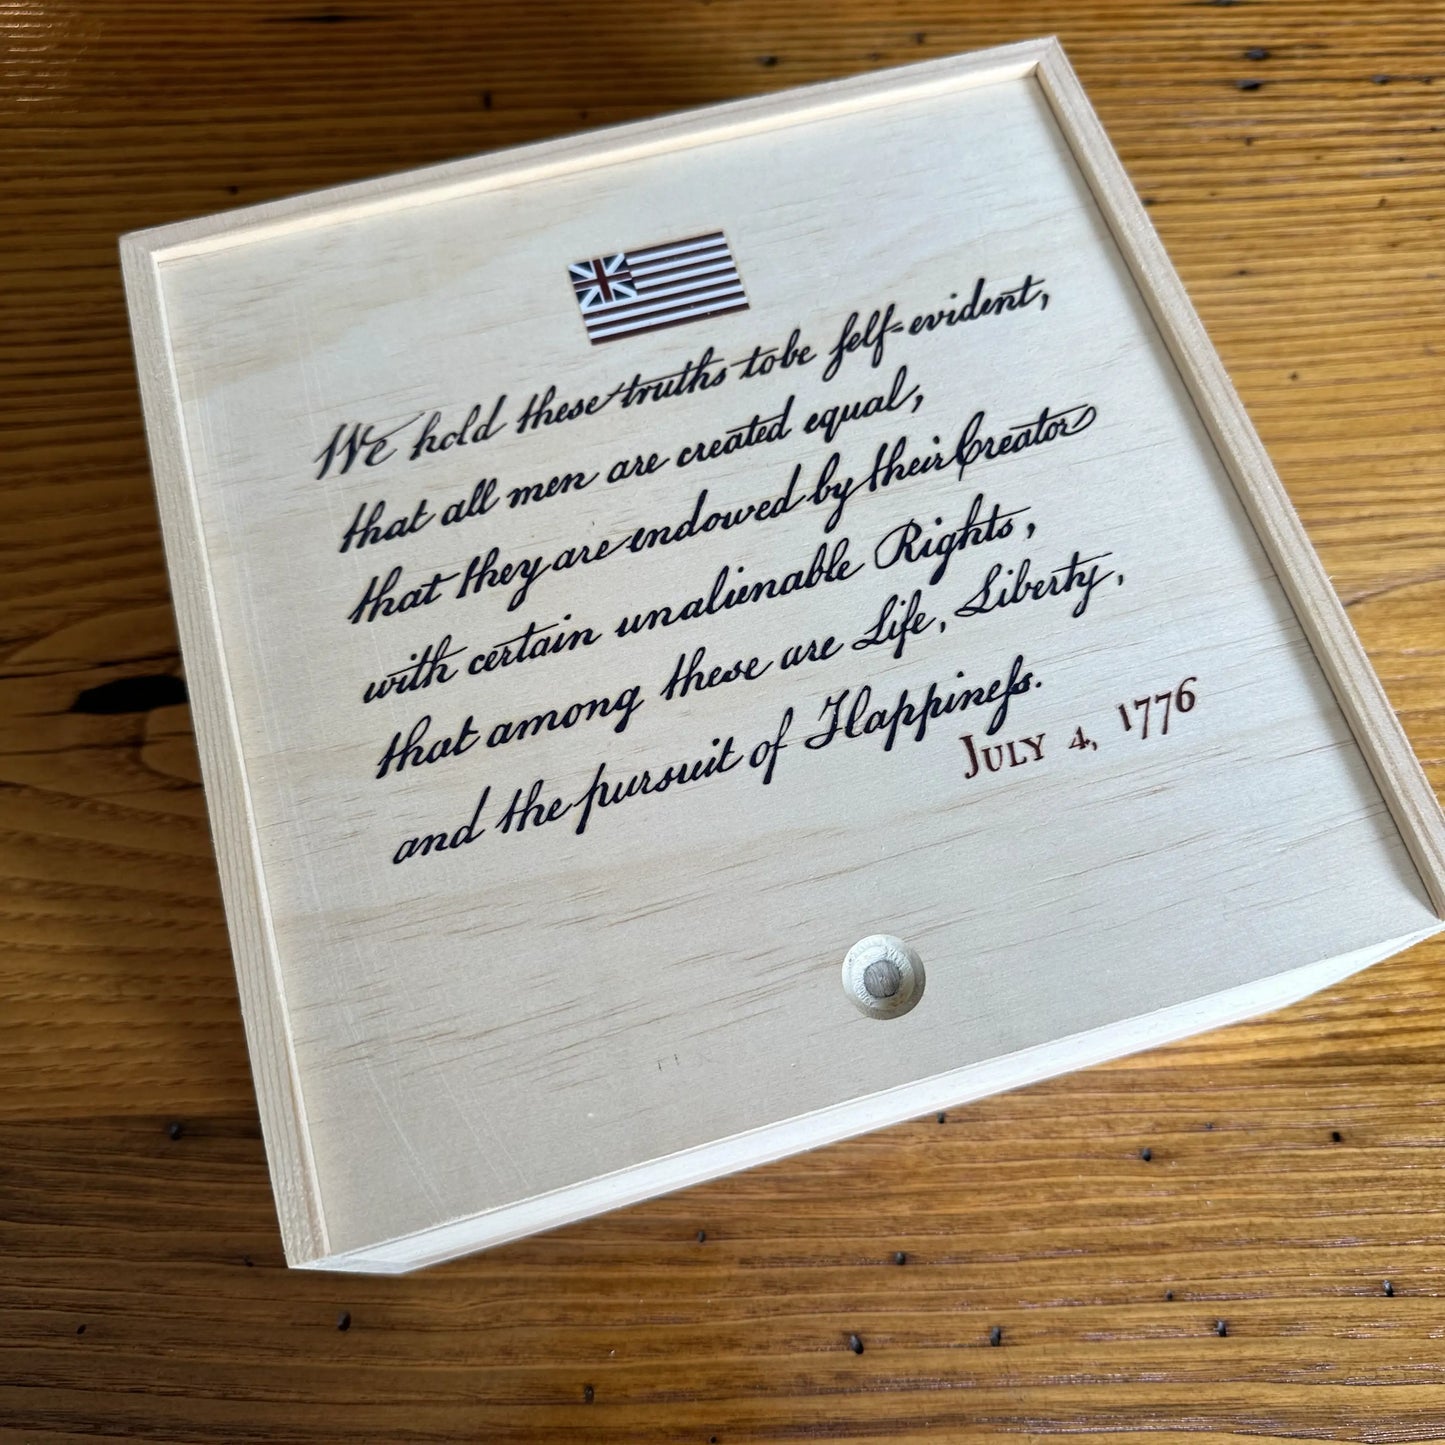 We hold these truths to be ſelf-evident,
that all men are created equal,
that they are endowed by their Creator
with certain unalienable Rights,
that among these are Life, Liberty,
and the pursuit of Happineſs.
July 4, 1776